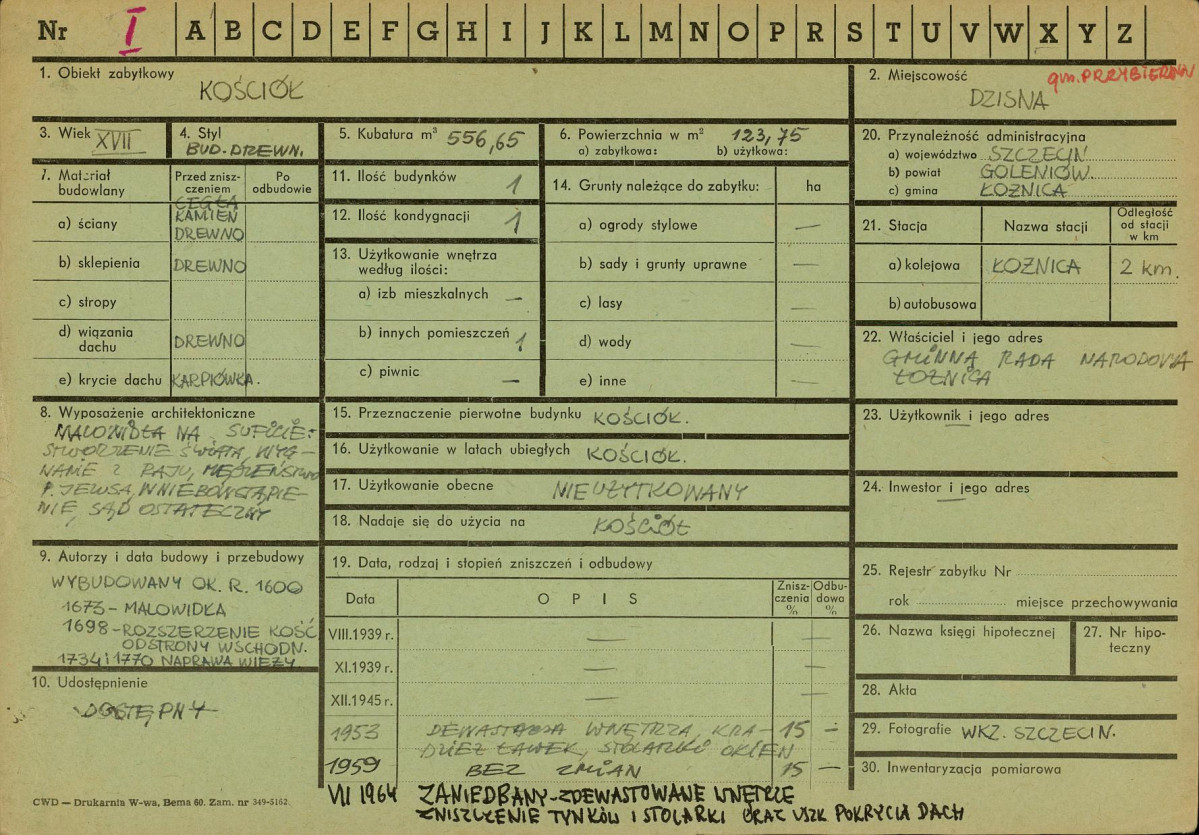 Nr I A B C D E F G H I J K L M N O P R S T U V W X Y Z
1. Obiekt zabytkowy
KOŚCIÓŁ
2. Miejscowość
gm. PRZYBIERNÓW
DZISNA
3. Wiek XVII
4. Styl
BUD. DRZEWN.
5. Kubatura m³ 556,65
6. Powierzchnia w m² 123,75
a) zabytkowa: b) użytkowa:
20. Przynależność administracyjna
a) województwo SZCZECIN
b) powiat GOLENIÓW.
c) gmina ŁOŹNICA
7. Materiał budowlany
Przed zniszczeniem
Po odbudowie
a) ściany
CEGŁA
KAMIEŃ
DREWNO
b) sklepienia DREWNO
c) stropy
d) wiązania dachu DREWNO
e) krycie dachu KARPIÓWKA.
11. Ilość budynków 1
12. Ilość kondygnacji 1
13. Użytkowanie wnętrza
według ilości:
a) izb mieszkalnych —
b) innych pomieszczeń 1
c) piwnic —
14. Grunty należące do zabytku: ha
a) ogrody stylowe —
b) sady i grunty uprawne —
c) lasy —
d) wody —
e) inne —
21. Stacja
Nazwa stacji
Odległość od stacji w km
a) kolejowa ŁOŹNICA 2 km.
b) autobusowa
22. Właściciel i jego adres
GMINNA RADA NARODOWA
ŁOŹNICA
8. Wyposażenie architektoniczne
MALOWIDŁA NA SUFICIE:
STWORZENIE ŚWIATA, WYG-
NANIE Z RAJU, MĘCZEŃSTWO
P. JEZUSA, WNIEBOWSTĄPIE-
NIE, SĄD OSTATECZNY
15. Przeznaczenie pierwotne budynku KOŚCIÓŁ.
16. Użytkowanie w latach ubiegłych KOŚCIÓŁ.
17. Użytkowanie obecne NIEUŻYTKOWANY
18. Nadaje się do użycia na KOŚCIÓŁ
23. Użytkownik i jego adres
24. Inwestor i jego adres
9. Autorzy i data budowy i przebudowy
WYBUDOWANY OK. R. 1600
1673 - MALOWIDŁA
1698 - ROZSZERZENIE KOŚĆ
OD STRONY WSCHODN.
1734 i 1770 NAPRAWA WIEŻY
10. Udostępnienie
DOSTĘPNY
19. Data, rodzaj i stopień zniszczeń i odbudowy
Data OPIS Zniszczenia % Odbudowa %
VIII.1939 r. — —
XI.1939 r. — —
XII.1945 r. — —
1953 DEWASTACJA WNĘTRZA, KRA- 15 —
DZIEŻ ŁAWEK, STOLARKI OKIEN
1959 BEZ ZMIAN 15 —
VII 1964 ZANIEDBANY - ZDEWASTOWANE WNĘTRZE
ZNISZCZENIE TYNKÓW I STOLARKI ORAZ USZK POKRYCIA DACH
25. Rejestr zabytku Nr
rok miejsce przechowywania
26. Nazwa księgi hipotecznej
27. Nr hipo-
teczny
28. Akta
29. Fotografie WKZ. SZCZECIN.
30. Inwentaryzacja pomiarowa
CWD — Drukarnia W-wa, Bema 60. Zam. nr 349-5162